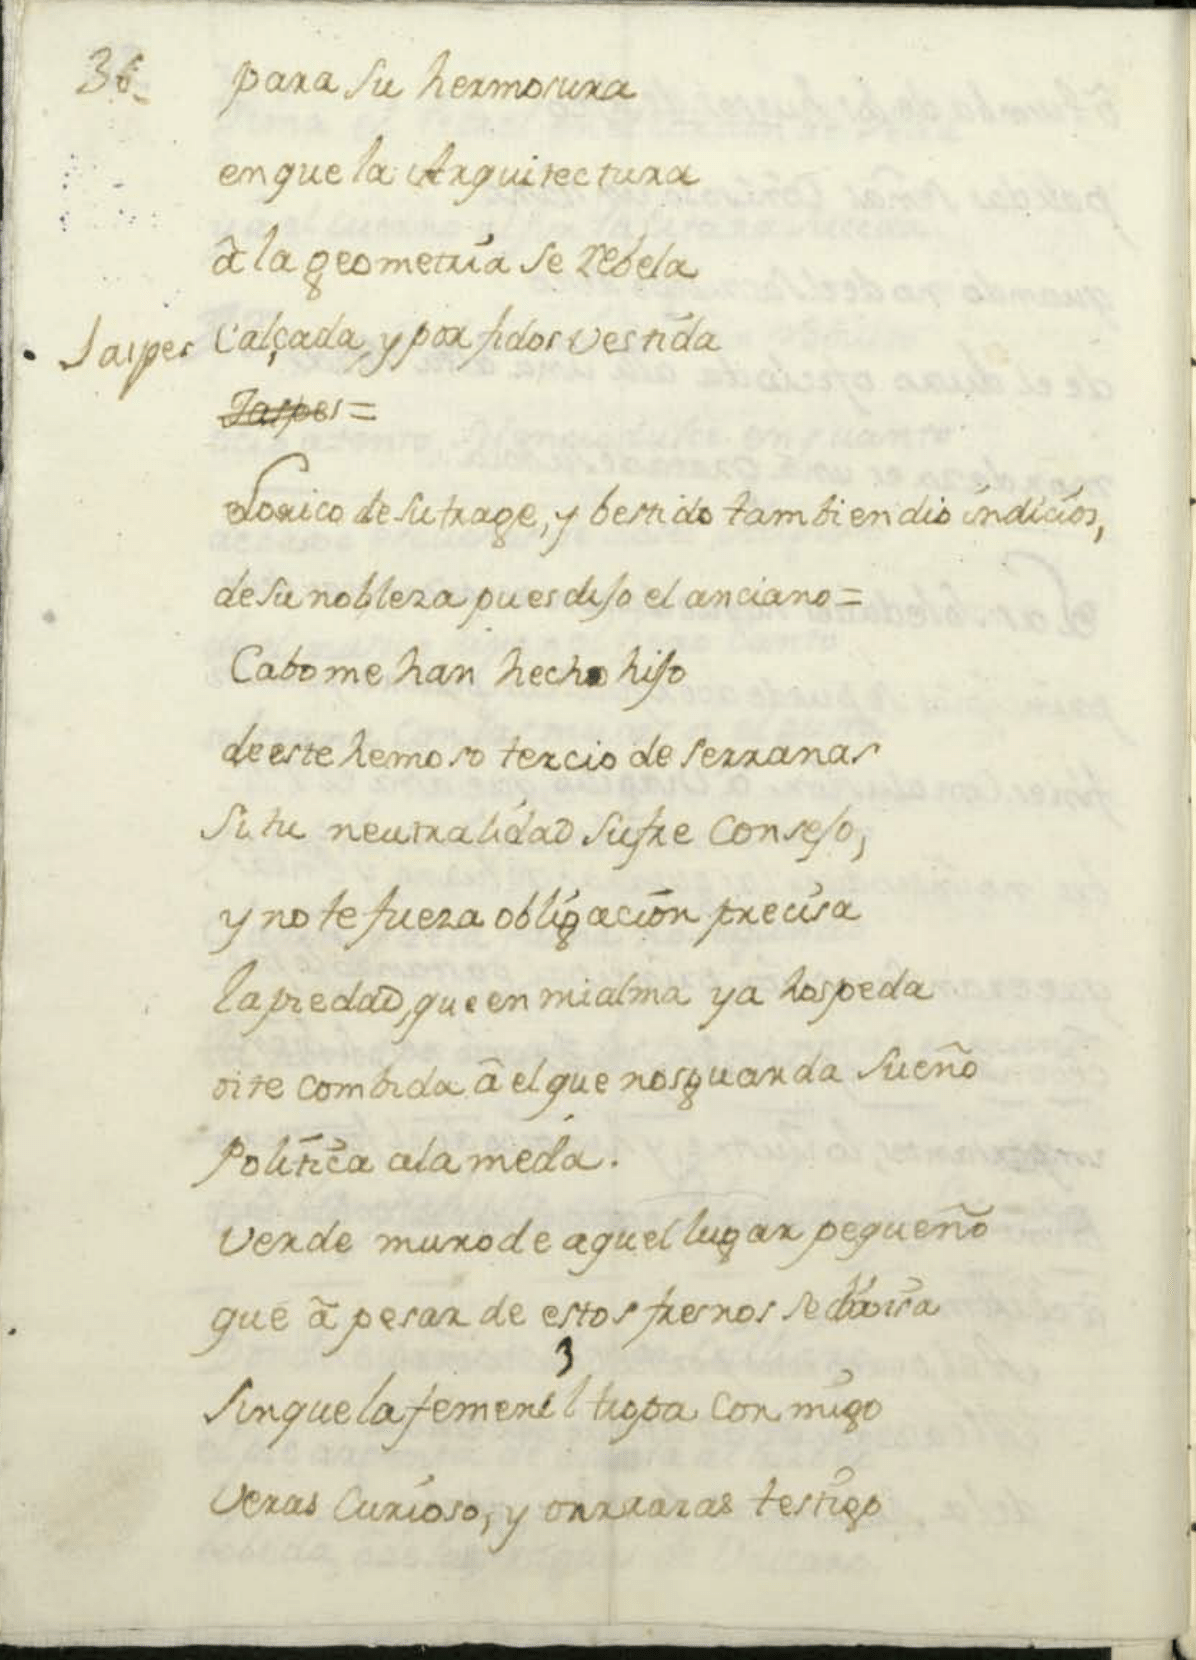 36
para su hermosura
en que la Arquitectura
â la geometria se rebela
Jaspes Calçada y porfidos vestida
Jaspes =
Lo rico de su trage, y bestido tambien dió indicios,
de su nobleza pues dijo el anciano =
Cabo me han hecho hijo
de este hemoso tercio de serranas
si tu neutralidad sufre consejo,
y no te fuerza obligación precisa
la piedad, que en mi alma ya hospeda
oi te combida â el que nos guarda sueño
Politica alameda.
verde muro de aquel lugar pequeño
que â pesar de estos fresnos se divisa
3
sin que la femenil tropa conmigo
veras curioso, y onrraras testigo